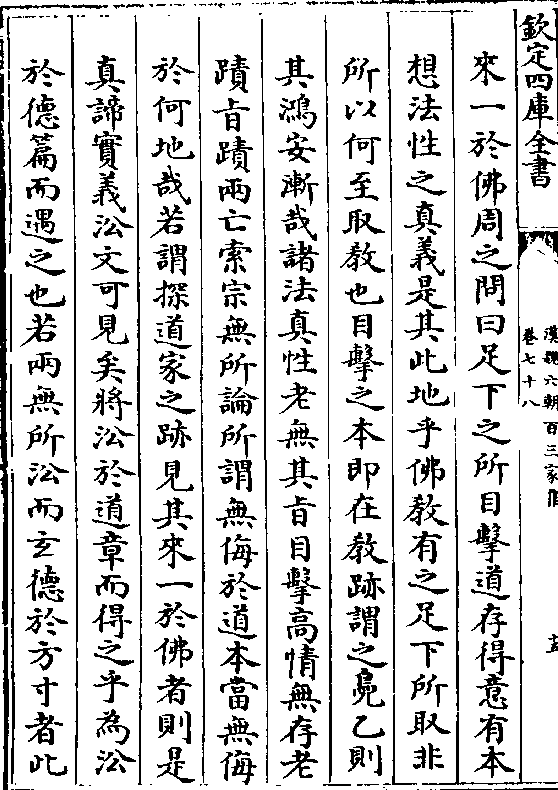 欽定四庫全書
漢魏六朝百三家集
卷七十八
來一於佛周之問曰足下之所目擊道存得意有本
想法性之真義是其此地乎佛教有之足下所取非
所以何至取教也目擊之本即在教跡謂之鳧乙則
其鴻安漸哉諸法真性老無其旨目擊高情無存老
蹟旨蹟兩亡索宗無所論所謂無侮於道本當無侮
於何地哉若謂探道家之跡見其來一於佛者則是
真諦實義㳂文可見矣將㳂於道章而得之乎為㳂
於德篇而遇之也若兩無所㳂而玄德於方寸者此